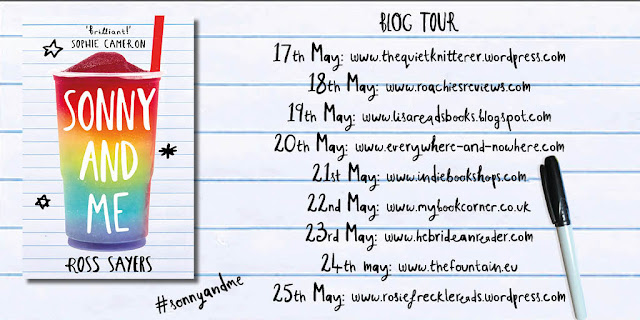 'Brilliant!'
SOPHIE CAMERON
SONNY
AND
ME
ROSS SAYERS
#sonnyandme
BLOG TOUR
17th May: www.thequietknitterer.wordpress.com
18th May: www.roachiesreviews.com
19th May: www.lisareadsbooks.blogspot.com
20th May: www.everywhere-and-nowhere.com
21st May: www.indiebookshops.com
22nd May: www.mybookcorner.co.uk
23rd May: www.hebrideanreader.com
24th may: www.thefountain.eu
25th May: www.rosiefrecklereads.wordpress.com